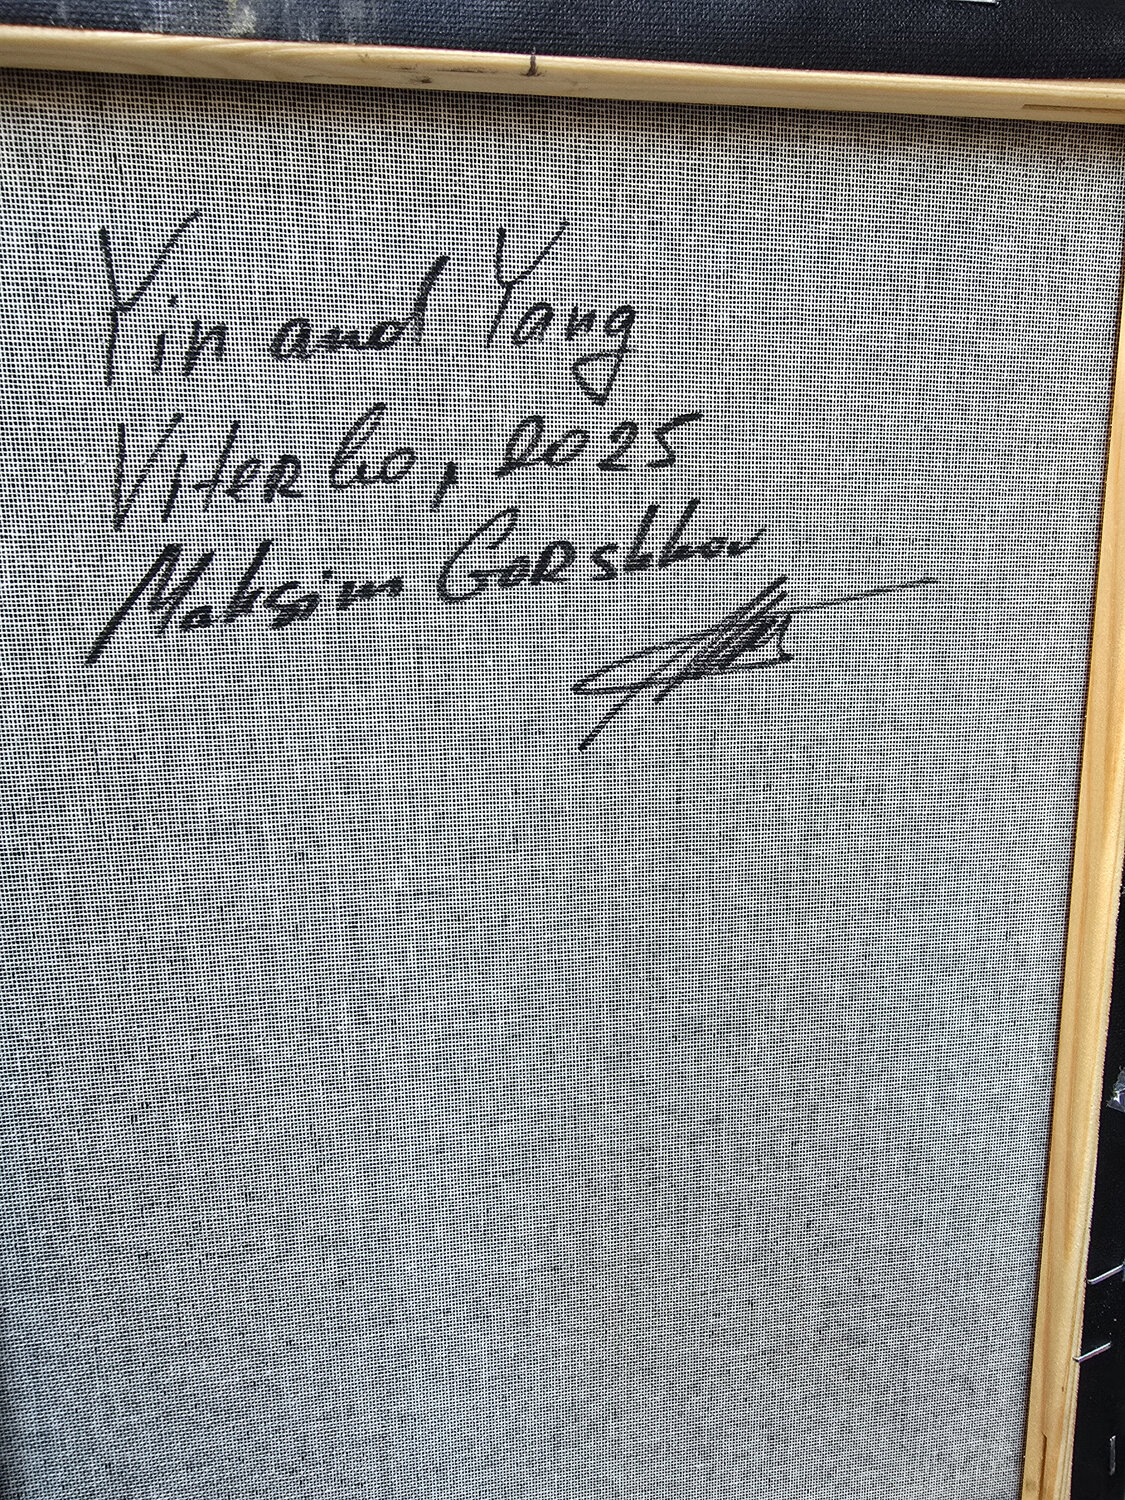 Yin and Yang
Viterbo, 2025
Maksim Gorshkov